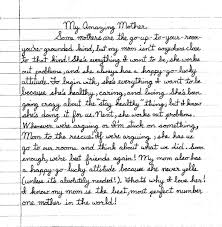 My Amazing Mother
Some mothers are the go-up-to-your-room-
you're-grounded kind, but my mom isn't anywhere close
to that kind! She's everything I want to be, she works
out problems, and she always has a happy-go-lucky
attitude. To begin with, she's everything I want to be
because she's healthy, caring, and loving. She's been
going crazy about the "stay healthy" thing, but I know
she's doing it for us. Next, she works out problems.
Whenever we're arguing or I'm stuck on something,
Mom to the rescue! If we're arguing, she has us
go to our rooms and think about what we did. Soon
enough, we're best friends again! My mom also has
a happy-go-lucky attitude because she never yells
(unless it's absolutely needed!). That's why I love her!
I know my mom is the best, most perfect number
one mother in the world!